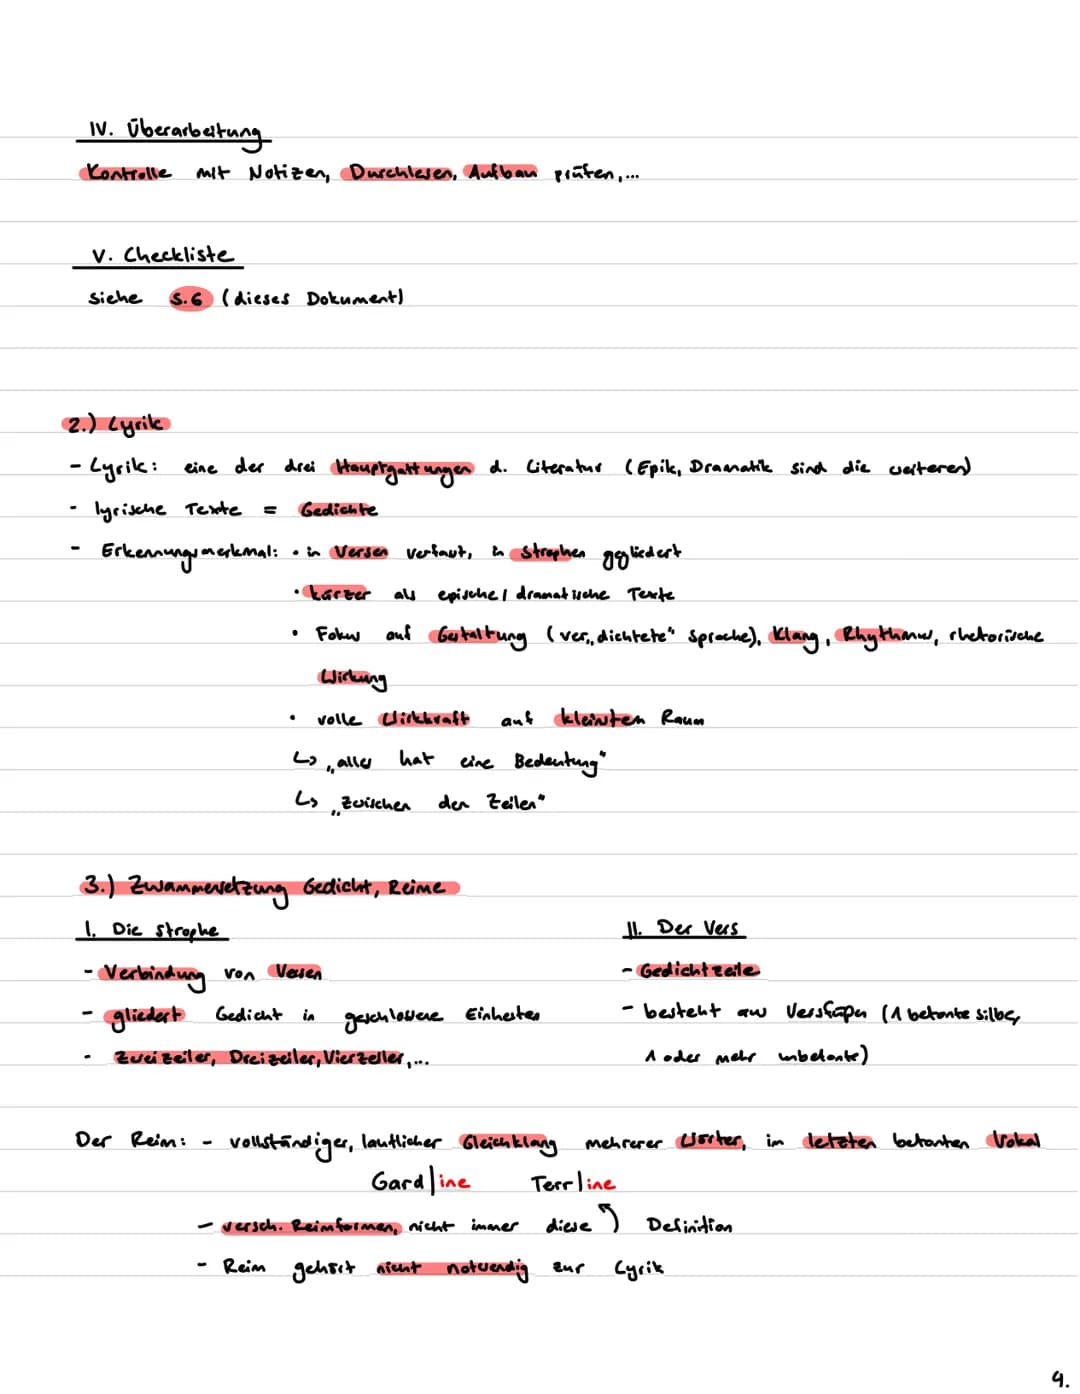 IV. Überarbeitung
Kontrolle mit Notizen, Durchlesen, Aufbau prüfen,...
V. Checkliste
siehe S.6 (dieses Dokument)
2.) Lyrik
- Lyrik: eine der drei Hauptgattungen d. Literatur (Epik, Dramatik sind die weiteren)
- lyrische Texte = Gedichte
- Erkennungsmerkmal: • in Versen verfasst, in Strophen gegliedert
• kürzer als epische / dramatische Texte
• Fokus auf Gestaltung (ver„dichtete“ Sprache), Klang, Rhythmus, rhetorische
Wirkung
• volle Wirkkraft auf kleinstem Raum
↳ „alles hat eine Bedeutung“
↳ „zwischen den Zeilen“
3.) Zusammensetzung Gedicht, Reime
I. Die Strophe
- Verbindung von Versen
- gliedert Gedicht in geschlossene Einheiten
- Zweizeiler, Dreizeiler, Vierzeiler,...
II. Der Vers
- Gedichtzeile
- besteht aus Versfüßen (1 betonte Silbe,
1 oder mehr unbetonte)
Der Reim: - vollständiger, lautlicher Gleichklang mehrerer Wörter, im letzten betonten Vokal
Gard|ine Terr|ine
- versch. Reimformen, nicht immer diese Definition
- Reim gehört nicht notwendig zur Lyrik
4.